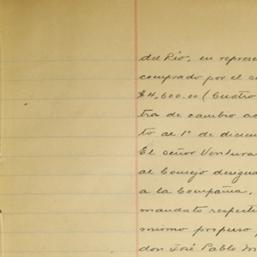 del Río, en repres
comprado por el s
$4,600.00 (Cuatro
tra de cambio ac
to al 1º de diciem
El señor Ventura
al Consejo desigua
a la Compañia,
mandato respecti
mismo propuso,
don José Pablo M